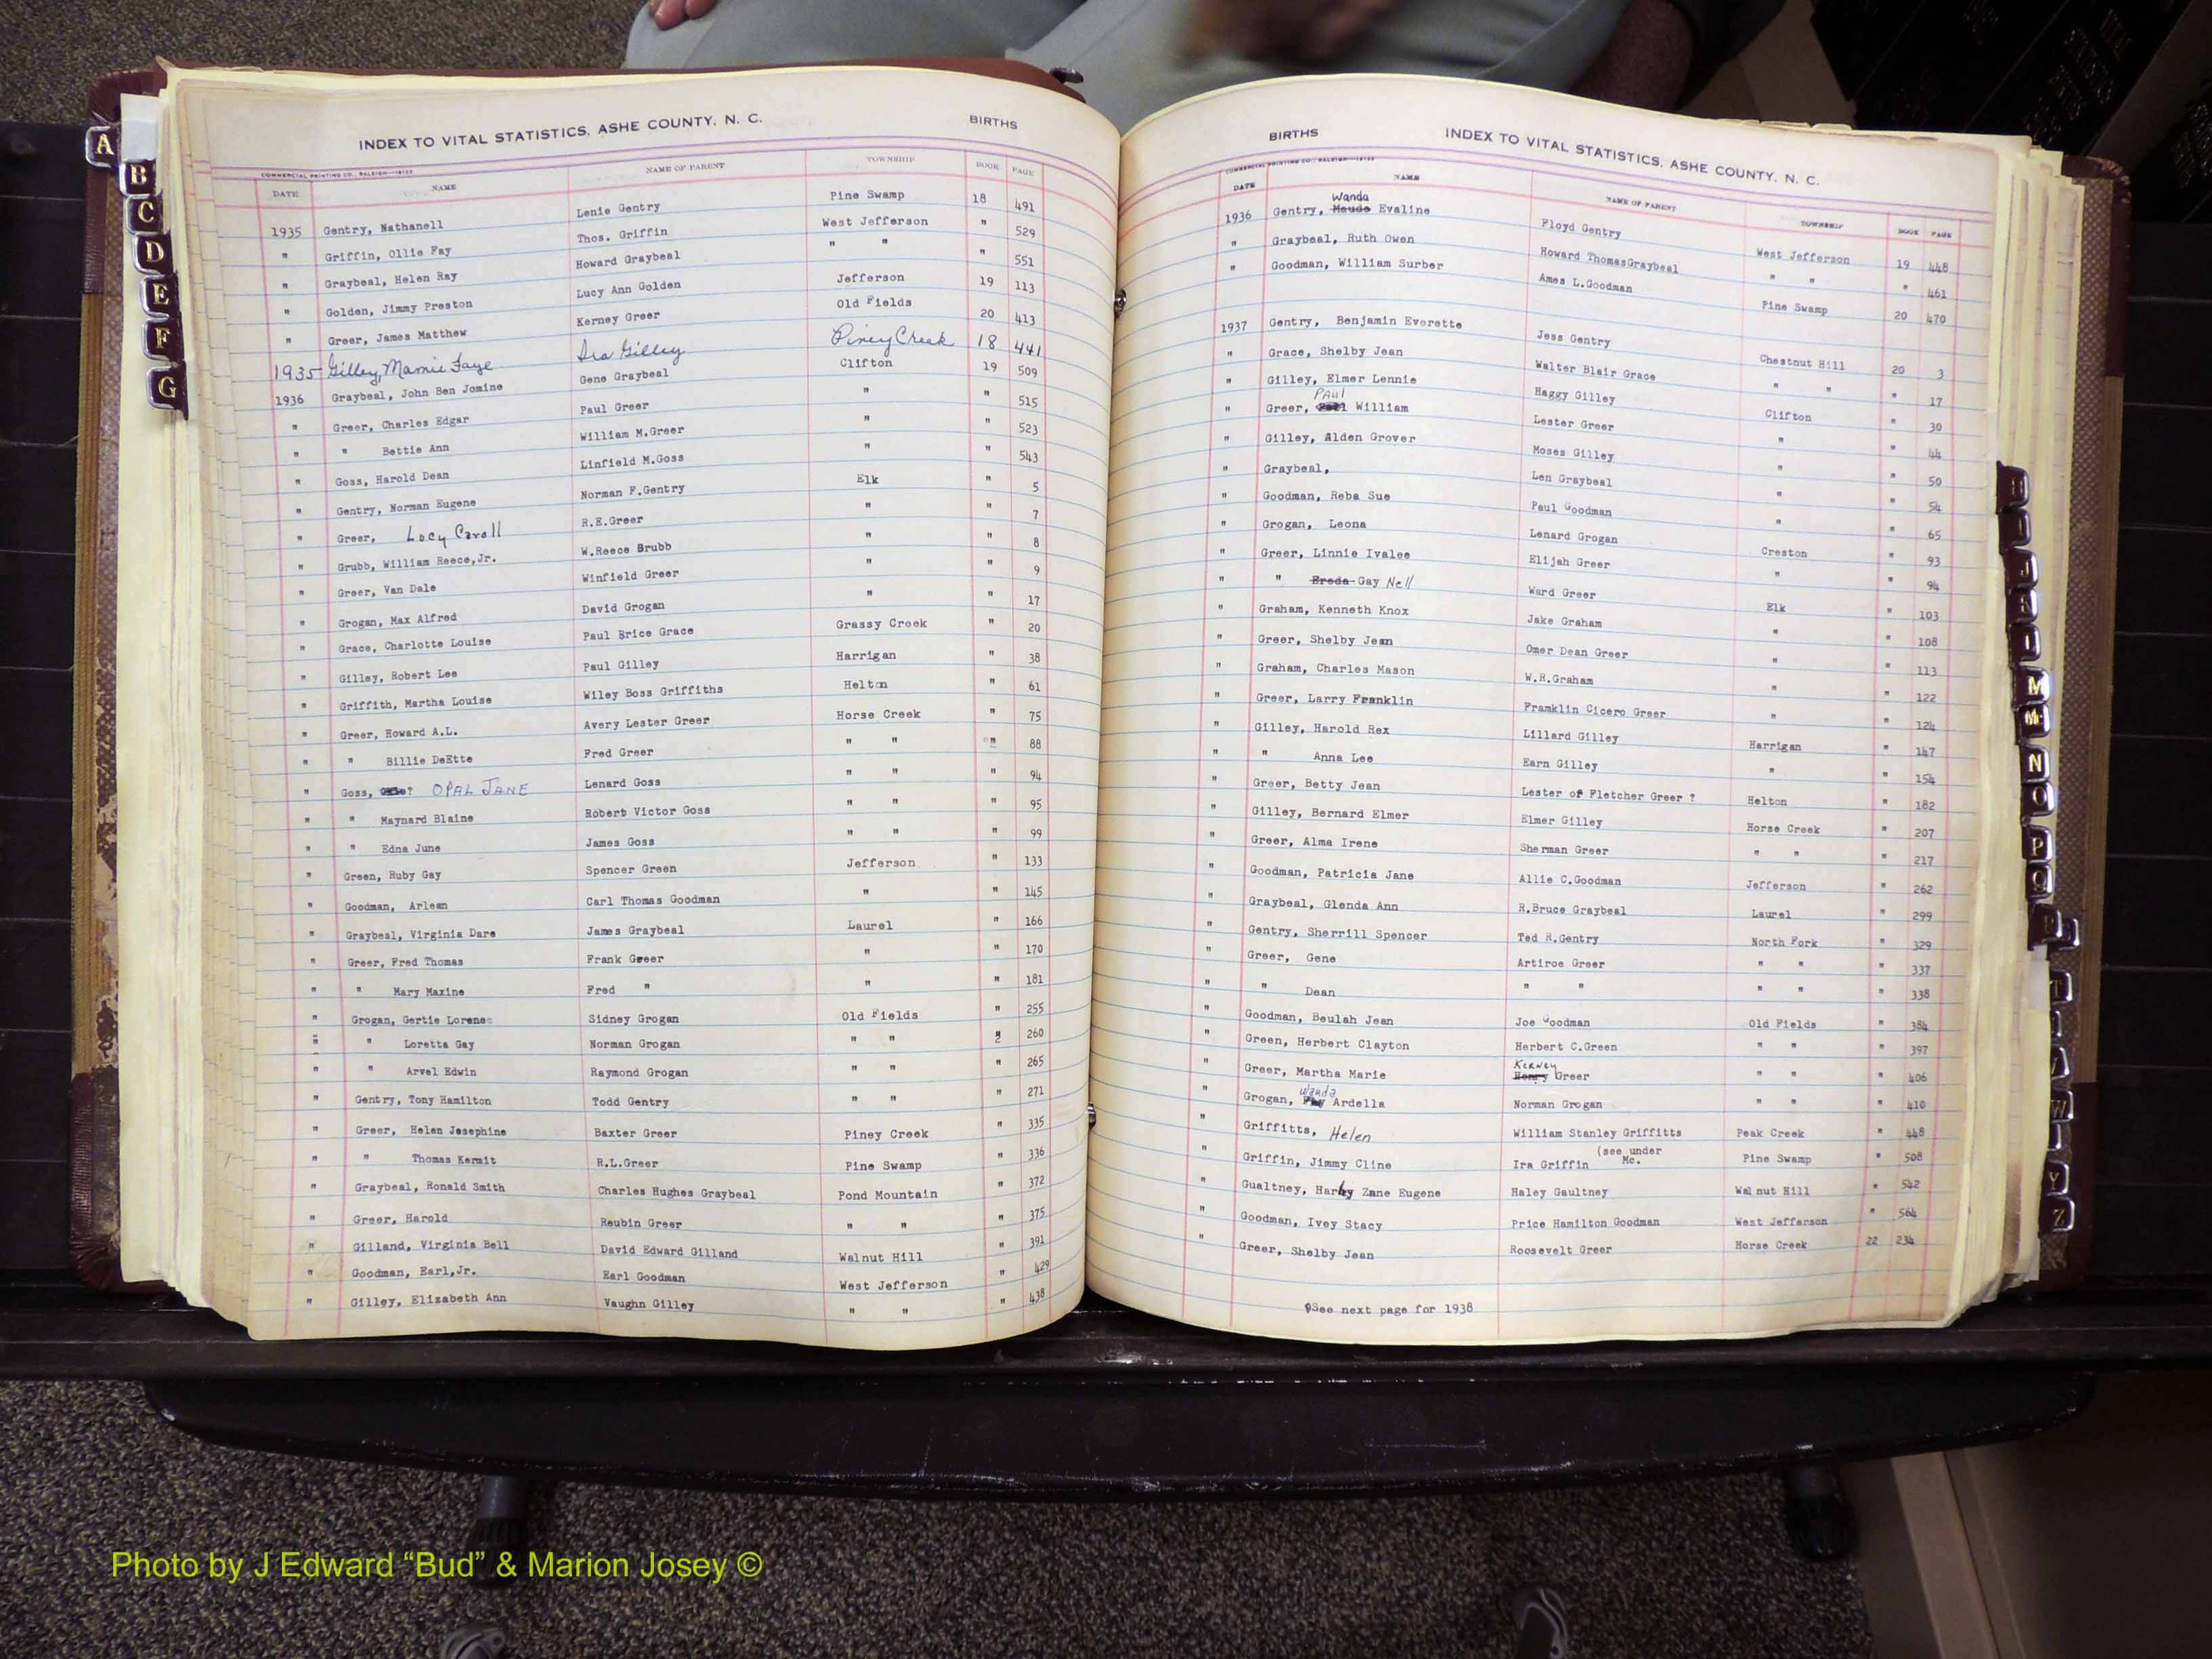 INDEX TO VITAL STATISTICS, ASHE COUNTY, N. C. BIRTHS
COMMERCIAL PRINTING CO., RALEIGH
DATE NAME NAME OF PARENT TOWNSHIP BOOK PAGE
1935 Gentry, Nathanell Lenie Gentry Pine Swamp 18 491
" Griffin, Ollie Fay Thos. Griffin West Jefferson " 529
" Graybeal, Helen Ray Howard Graybeal " " " 551
" Golden, Jimmy Preston Lucy Ann Golden Jefferson 19 113
" Greer, James Matthew Kerney Greer Old Fields 20 413
1935 Gilley, Mamie Faye Ira Gilley Piney Creek 18 441
1936 Graybeal, John Ben Jomine Gene Graybeal Clifton 19 509
" Greer, Charles Edgar Paul Greer " " 515
" " Bettie Ann William M.Greer " " 523
" Goss, Harold Dean Linfield M.Goss " " 543
" Gentry, Norman Eugene Norman F.Gentry Elk " 5
" Greer, Locy Caroll R.E.Greer " " 7
" Grubb, William Reece,Jr. W.Reece Brubb " " 8
" Greer, Van Dale Winfield Greer " " 9
" Grogan, Max Alfred David Grogan " " 17
" Grace, Charlotte Louise Paul Brice Grace Grassy Creek " 20
" Gilley, Robert Lee Paul Gilley Harrigan " 38
" Griffith, Martha Louise Wiley Boss Griffiths Helton " 61
" Greer, Howard A.L. Avery Lester Greer Horse Creek " 75
" " Billie DeEtte Fred Greer " " " 88
" Goss, ? OPAL JANE Lenard Goss " " " 94
" " Maynard Blaine Robert Victor Goss " " " 95
" " Edna June James Goss " " " 99
" Green, Ruby Gay Spencer Green Jefferson " 133
" Goodman, Arlean Carl Thomas Goodman " " 145
" Graybeal, Virginia Dare James Graybeal Laurel " 166
" Greer, Fred Thomas Frank Greer " " 170
" " Mary Maxine Fred " " " 181
" Grogan, Gertie Lorene Sidney Grogan Old Fields " 255
" " Loretta Gay Norman Grogan " " 260
" " Arvel Edwin Raymond Grogan " " " 265
" Gentry, Tony Hamilton Todd Gentry " " " 271
" Greer, Helen Josephine Baxter Greer Piney Creek " 335
" " Thomas Kermit R.L.Greer Pine Swamp " 336
" Graybeal, Ronald Smith Charles Hughes Graybeal Pond Mountain " 372
" Greer, Harold Reubin Greer " " " 375
" Gilland, Virginia Bell David Edward Gilland Walnut Hill " 391
" Goodman, Earl,Jr. Earl Goodman West Jefferson " 429
" Gilley, Elizabeth Ann Vaughn Gilley " " " 438
BIRTHS INDEX TO VITAL STATISTICS, ASHE COUNTY, N. C.
COMMERCIAL PRINTING CO., RALEIGH
DATE NAME NAME OF PARENT TOWNSHIP BOOK PAGE
Wanda
1936 Gentry, Maude Evaline Floyd Gentry West Jefferson 19 448
" Graybeal, Ruth Owen Howard ThomasGraybeal " " " 461
" Goodman, William Surber Ames L.Goodman Pine Swamp 20 470
1937 Gentry, Benjamin Everette Jess Gentry Chestnut Hill 20 3
" Grace, Shelby Jean Walter Blair Grace " " " 17
" Gilley, Elmer Lennie Haggy Gilley Clifton " 30
PAUL
" Greer, William Lester Greer " " 44
" Gilley, Alden Grover Moses Gilley " " 50
" Graybeal, Len Graybeal " " 54
" Goodman, Reba Sue Paul Goodman " " 65
" Grogan, Leona Lenard Grogan Creston " 93
" Greer, Linnie Ivalee Elijah Greer " " 94
" " Breda Gay Nell Ward Greer Elk " 103
" Graham, Kenneth Knox Jake Graham " " 108
" Greer, Shelby Jean Omer Dean Greer " " 113
" Graham, Charles Mason W.H.Graham " " 122
" Greer, Larry Franklin Framklin Cicero Greer " " 124
" Gilley, Harold Rex Lillard Gilley Harrigan " 147
" " Anna Lee Earn Gilley " " 154
" Greer, Betty Jean Lester of Fletcher Greer ? Helton " 182
" Gilley, Bernard Elmer Elmer Gilley Horse Creek " 207
" Greer, Alma Irene Sherman Greer " " " 217
" Goodman, Patricia Jane Allie C.Goodman Jefferson " 262
" Graybeal, Glenda Ann R.Bruce Graybeal Laurel " 299
" Gentry, Sherrill Spencer Ted R.Gentry North Fork " 329
" Greer, Gene Artiroe Greer " " " 337
" " Dean " " " " " 338
" Goodman, Beulah Jean Joe Goodman Old Fields " 384
" Green, Herbert Clayton Herbert C.Green " " " 397
Kerney
" Greer, Martha Marie Henry Greer " " " 406
Wanda
" Grogan, Ardella Norman Grogan " " " 410
" Griffitts, Helen William Stanley Griffitts Peak Creek " 448
(see under
" Griffin, Jimmy Cline Ira Griffin Mc. Pine Swamp " 508
" Gualtney, Harby Zane Eugene Haley Gaultney Walnut Hill " 542
" Goodman, Ivey Stacy Price Hamilton Goodman West Jefferson " 564
" Greer, Shelby Jean Roosevelt Greer Horse Creek 22 234
See next page for 1938
A
B
C
D
E
F
G
M
Mc
N
O
P
Q
T
W
Y
Z
Photo by J Edward “Bud” & Marion Josey ©